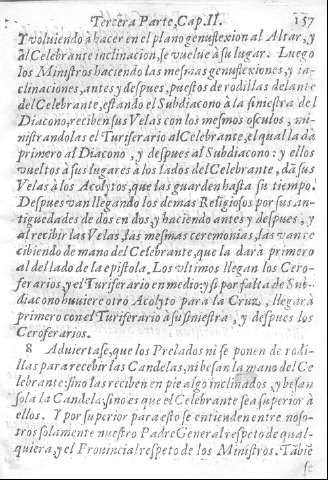 Tercera Parte, Cap. II. 157
Y voluiendo à hacer en el plano genuflexion al Altar, y
al Celebrante inclinacion, se vuelue à su lugar. Luego
los Ministros haciendo las mesmas genuflexiones, y in-
clinaciones, antes y despues, puestos de rodillas delante
del Celebrante, estando el Subdiacono à la siniestra del
Diacono, reciben sus Velas con los mesmos osculos, mi-
nistrandolas el Turiferario al Celebrante, el qual la dà
primero al Diacono, y despues al Subdiacono: y ellos
vueltos à sus lugares à los lados del Celebrante, dã sus
Velas à los Acolytos, que las guarden hasta su tiempo.
Despues van llegando los demas Religiosos por sus an-
tiguedades de dos en dos, y haciendo antes y despues, y
al recibir las Velas, las mesmas ceremonias, las van re
cibiendo de mano del Celebrante, que la darà primero
al del lado de la epistola. Los vltimos llegan los Cero-
ferarios, y el Turiferario en medio: y si por falta de Sub-
diacono huuiere otro Acolyto para la Cruz, llegarà
primero con el Turiferario à su siniestra, y despues los
Ceroferarios.
8 Aduiertase, que los Prelados ni se ponen de rodi-
llas para recebir las Candelas, ni besan la mano del Ce
lebrante: sino las reciben en pie algo inclinados, y besan
sola la Candela: sino es que el Celebrante sea superior à
ellos. Y por superior para esto se entienden entre noso-
tros solamente nuestro Padre General respeto de qual-
quiera, y el Prouincial respeto de los Ministros. Tãbiẽ
se